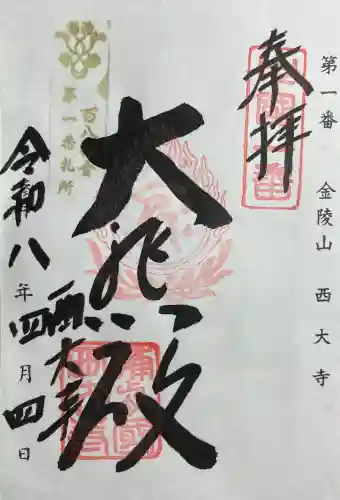 第一番 金陵山 西大寺
奉拝
大悲殿
百八番
第一番札所
西大寺
令和八年四月四日